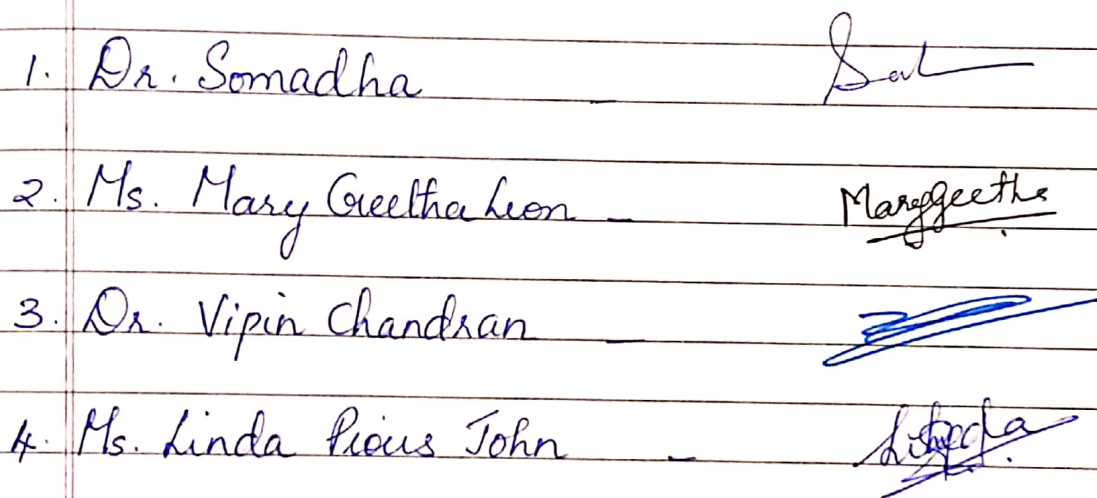 1. Dr. Somadha -
2. Ms. Mary Geetha Leon - Marygeetha
3. Dr. Vipin Chandran -
4. Ms. Linda Pious John -